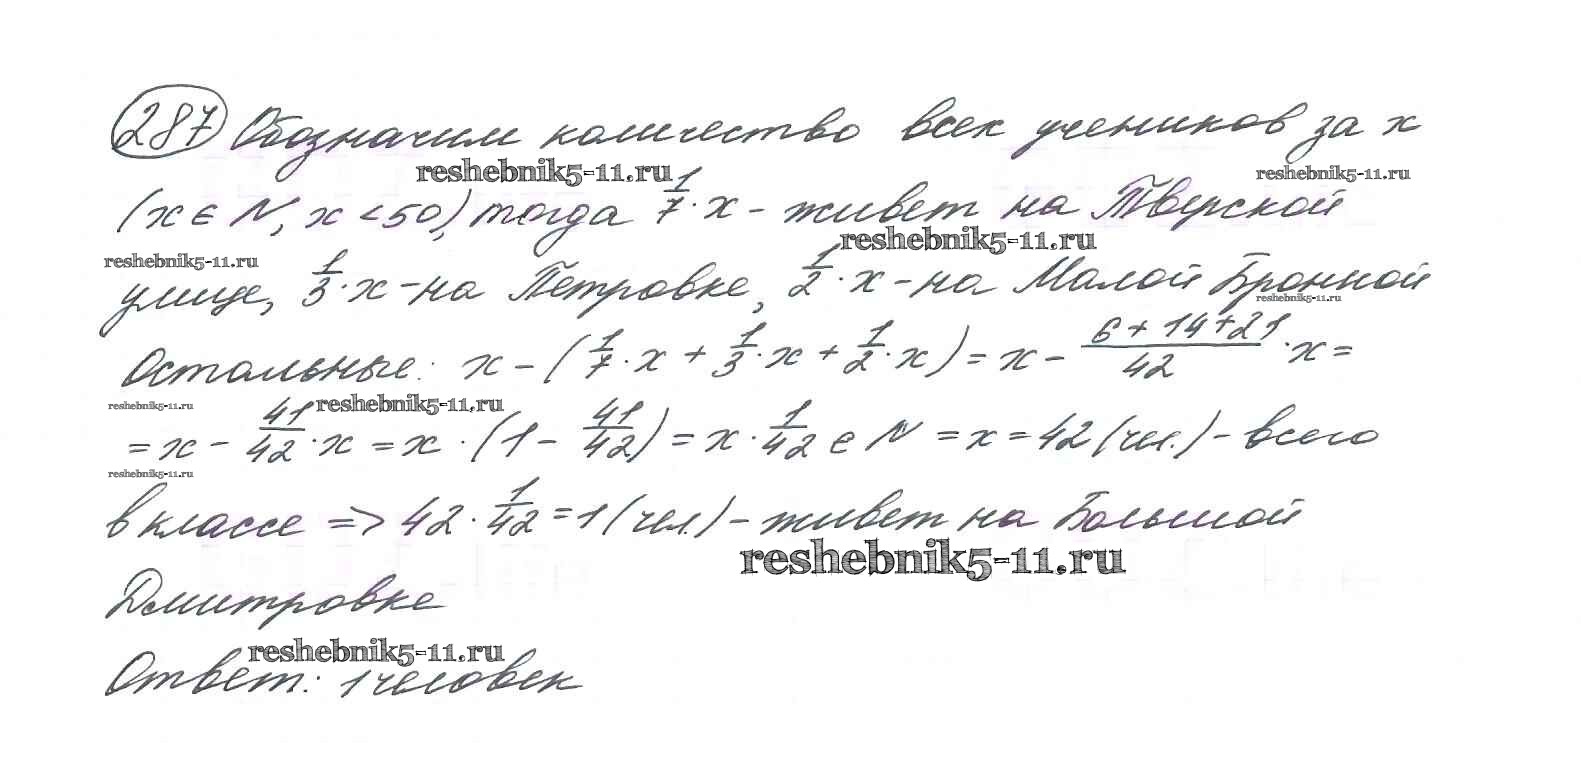 287 Обозначим количество всех учеников за x
reshebnik5-11.ru reshebnik5-11.ru
(x ∈ N, x < 50), тогда 1/7 · x - живет на Тверской
reshebnik5-11.ru reshebnik5-11.ru
улице, 1/3 · x - на Петровке, 1/2 · x - на Малой Бронной
reshebnik5-11.ru
Остальные: x - (1/7 · x + 1/3 · x + 1/2 · x) = x - (6 + 14 + 21)/42 · x =
reshebnik5-11.ru reshebnik5-11.ru
= x - 41/42 · x = x · (1 - 41/42) = x · 1/42 ∈ N = x = 42 (чел.) - всего
reshebnik5-11.ru
в классе => 42 · 1/42 = 1 (чел.) - живет на Большой
reshebnik5-11.ru
Дмитровке
reshebnik5-11.ru
Ответ: 1 человек